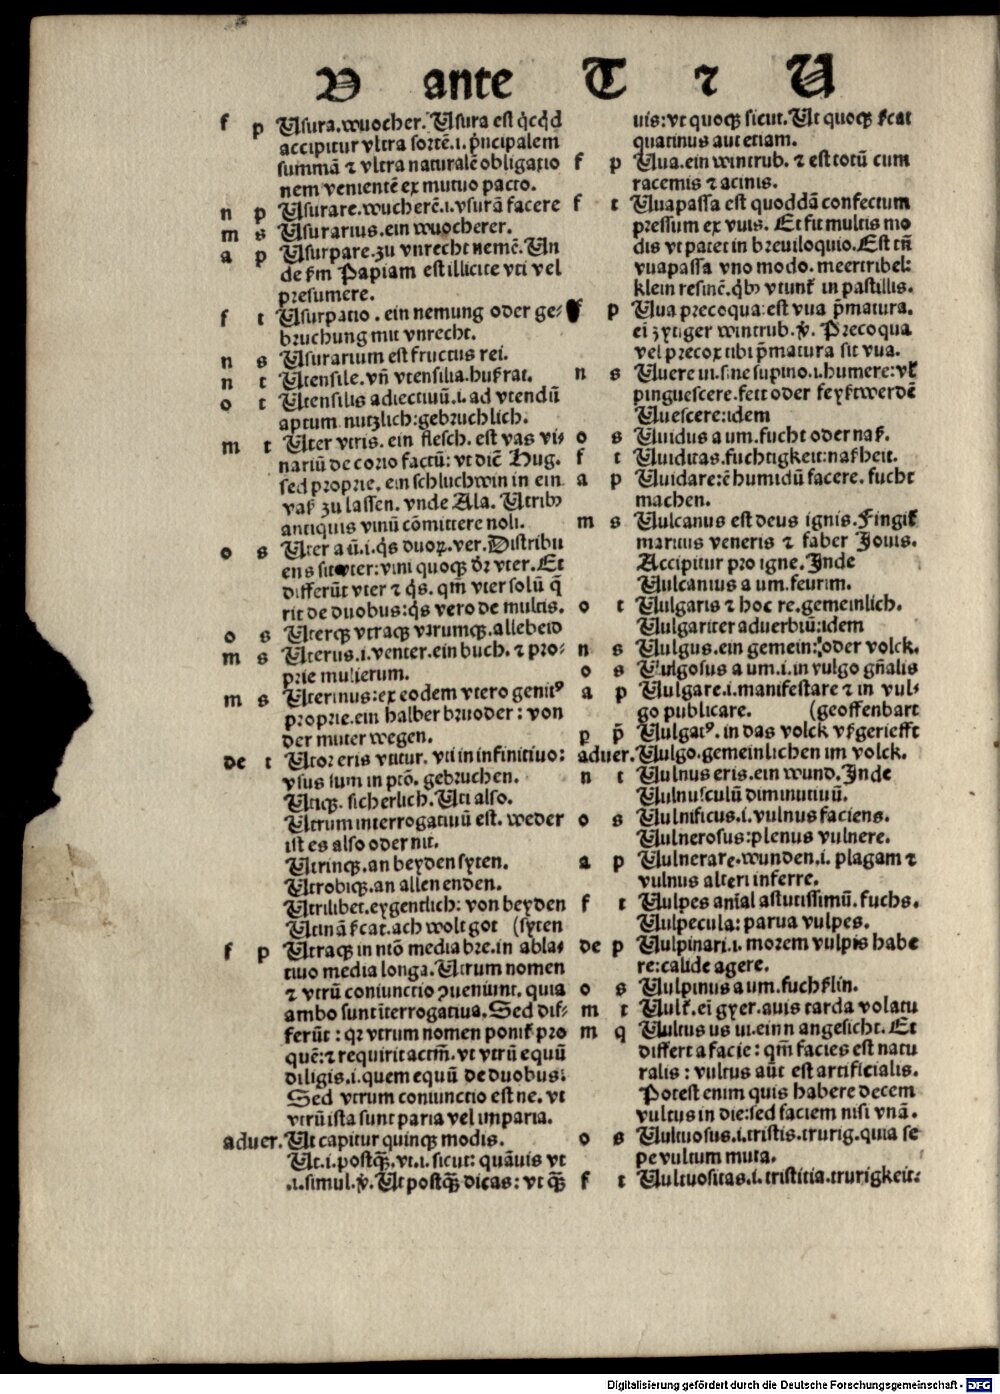 V ante T ⁊ U
f p Usura.wuocher. Usura est q̇cq̇d
accipitur vltra sortē.i. p̄ncipalem
summā ⁊ vltra naturalē obligatio
nem venientē ex mutuo pacto.
n p Usurare.wucherē.i.vsurā facere
m s Usurarius.ein wuocherer.
a p Usurpare.zu vnrecht nemē. Un
de ẜm Papiam est illicite vti vel
presumere.
f t Usurpatio . ein nemung oder ge-
bruchung mit vnrecht.
n s Usurarium est fructus rei.
n t Utensile.vn̄ vtensilia.hußrat.
o t Utensilis adiectiuū.i. ad vtendū
aptum nutzlich:gebruchlich.
m t Uter vtris. ein flesch. est vas vi-
nariū de corio factū: vt dic̄ Hug.
sed proprie. ein schluchwin in ein
vaß zu lassen. vnde Ala. Utribꝫ
antiquis vinū cōmittere noli.
o s Uter a ū.i.q̇s duoꝝ.ver.Distribu
ens sit vter:vini quoqꝫ d̄r vter. Et
differūt vter ⁊ q̇s. qm̄ vter solū q̄
rit de duobus:q̇s vero de multis.
o s Uterqꝫ vtraqꝫ vtrumqꝫ.allebeid
m s Uterus.i.venter.ein buch. ⁊ pro-
prie mulierum.
m s Uterinus:ex eodem vtero genitꝰ
proprie.ein halber bruoder: von
der muter wegen.
de t Utor eris vtitur. vti in infinitiuo:
vsus sum in ptō. gebruchen.
Utiqꝫ. sicherlich. Uti also.
Utrum interrogatiuū est. weder
ist es also oder nit.
Utrinqꝫ.an beyden syten.
Utrobiqꝫ.an allen enden.
Utrilibet.eygentlich: von beyden
Utinā ẜcat.ach wolt got (syten
f p Utraqꝫ in ntō media bre.in abla-
tiuo media longa. Utrum nomen
⁊ vtrū coniunctio ꝯueniunt. quia
ambo sunt īterrogatiua. Sed dif-
ferūt : qꝛ vtrum nomen poniť pro
quē:⁊ requirit actm̄.vt vtrū equū
diligis.i.quem equū de duobus:
Sed vtrum coniunctio est ne. vt
vtrū ista sunt paria vel imparia.
aduer. Ut capitur quinqꝫ modis.
Ut.i.postqꝫ̄.vt.i.sicut: quāuis vt
.i.simul.ꝟ. Ut postqꝫ̄ dicas: vt qꝫ̄
uis:vt quoqꝫ sicut. Ut quoqꝫ ẜcat
quatinus aut etiam.
f p Uua.ein wintrub. ⁊ est totū cum
racemis ⁊ acinis.
f t Uuapassa est quoddā confectum
pressum ex vuis. Et fit multis mo
dis vt patet in breuiloquio. Est tn̄
vuapassa vno modo. meertribel:
klein resinē.q̇bꝫ vtunť in pastillis.
f p Uua precoqua:est vua p̄matura.
ei zytiger wintrub.ꝟ. Precoqua
vel precox tibi p̄matura sit vua.
n s Uuere ui.s.ne supino.i.humere:vľ
pinguescere.fett oder feyßt werdē
Uuescere:idem
o s Uuidus a um.fucht oder naß.
f t Uuiditas.fuchtigkeit:naßheit.
a p Uuidare:ē humidū facere. fucht
machen.
m s Vulcanus est deus ignis. Fingiť
maritus veneris ⁊ faber Jouis.
Accipitur pro igne. Inde
Vulcanius a um.feurim.
o t Vulgaris ⁊ hoc re.gemeinlich.
Vulgariter aduerbiū:idem
n s Vulgus.ein gemein:oder volck.
o s Vulgosus a um.i.in vulgo gn̄alis
a p Vulgare.i.manifestare ⁊ in vul-
go publicare. (geoffenbart
p p̄ Vulgatꝰ. in das volck vßgeriefft
aduer. Vulgo.gemeinlichen im volck.
n t Vulnus eris.ein wund. Inde
Vulnusculū diminutiuū.
o s Vulnificus.i.vulnus faciens.
Vulnerosus:plenus vulnere.
a p Vulnerare.wunden.i. plagam ⁊
vulnus alteri inferre.
f t Vulpes anīal astutissimū. fuchs.
Vulpecula: parua vulpes.
de p Vulpinari.i. morem vulpis habe
re:calide agere.
o s Vulpinus a um.fuchßlin.
m t Vulť.ei gyer.auis tarda volatu
m q Vultus us ui.ein n angesicht. Et
differt a facie : qm̄ facies est natu
ralis : vultus aūt est artificialis.
Potest enim quis habere decem
vultus in die:sed faciem nisi vnā.
o s Vultuosus.i.tristis.trurig.quia se
pe vultum muta.
f t Vultuositas.i. tristitia.trurigkeit:
Digitalisierung gefördert durch die Deutsche Forschungsgemeinschaft - DFG